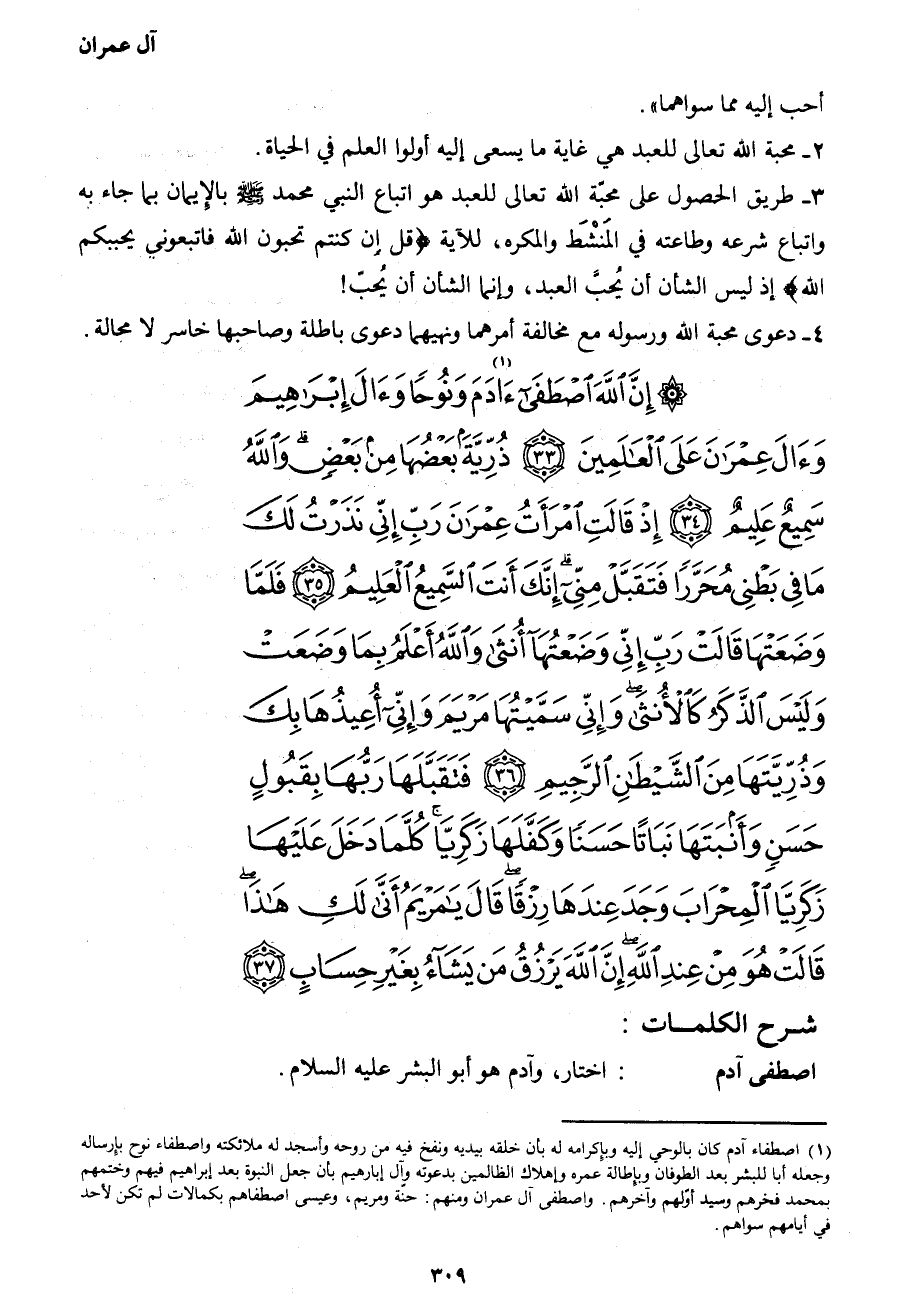 آل عمران
أحب إليه مما سواهما» .
٢ـ محبة الله تعالى للعبد هي غاية ما يسعى إليه أولوا العلم في الحياة .
٣ـ طريق الحصول على محبّة الله تعالى للعبد هو اتباع النبي محمد ﷺ بالإيمان بما جاء به
واتباع شرعه وطاعته في المَنْشَط والمكره، للآية ﴿قل إن كنتم تحبون الله فاتبعوني يحببكم
الله﴾ إذ ليس الشأن أن يُحبَّ العبد، وإنما الشأن أن يُحبّ!
٤ـ دعوى محبة الله ورسوله مع مخالفة أمرهما ونهيهما دعوى باطلة وصاحبها خاسر لا محالة .
۞ إِنَّ ٱللَّهَ ٱصْطَفَىٰٓ ءَادَمَ(١) وَنُوحًا وَءَالَ إِبْرَٰهِيمَ
وَءَالَ عِمْرَٰنَ عَلَى ٱلْعَٰلَمِينَ ﴿٣٣﴾ ذُرِّيَّةًۢ بَعْضُهَا مِنۢ بَعْضٍۗ وَٱللَّهُ
سَمِيعٌ عَلِيمٌ ﴿٣٤﴾ إِذْ قَالَتِ ٱمْرَأَتُ عِمْرَٰنَ رَبِّ إِنِّي نَذَرْتُ لَكَ
مَا فِي بَطْنِي مُحَرَّرًا فَتَقَبَّلْ مِنِّيٓۖ إِنَّكَ أَنتَ ٱلسَّمِيعُ ٱلْعَلِيمُ ﴿٣٥﴾ فَلَمَّا
وَضَعَتْهَا قَالَتْ رَبِّ إِنِّي وَضَعْتُهَآ أُنثَىٰ وَٱللَّهُ أَعْلَمُ بِمَا وَضَعَتْ
وَلَيْسَ ٱلذَّكَرُ كَٱلْأُنثَىٰۖ وَإِنِّي سَمَّيْتُهَا مَرْيَمَ وَإِنِّيٓ أُعِيذُهَا بِكَ
وَذُرِّيَّتَهَا مِنَ ٱلشَّيْطَٰنِ ٱلرَّجِيمِ ﴿٣٦﴾ فَتَقَبَّلَهَا رَبُّهَا بِقَبُولٍ
حَسَنٍ وَأَنۢبَتَهَا نَبَاتًا حَسَنًا وَكَفَّلَهَا زَكَرِيَّاۚ كُلَّمَا دَخَلَ عَلَيْهَا
زَكَرِيَّا ٱلْمِحْرَابَ وَجَدَ عِندَهَا رِزْقًاۖ قَالَ يَٰمَرْيَمُ أَنَّىٰ لَكِ هَٰذَاۖ
قَالَتْ هُوَ مِنْ عِندِ ٱللَّهِۖ إِنَّ ٱللَّهَ يَرْزُقُ مَن يَشَآءُ بِغَيْرِ حِسَابٍ ﴿٣٧﴾
شرح الكلمات :
اصطفى آدم : اختار، وآدم هو أبو البشر عليه السلام .
(١) اصطفاء آدم كان بالوحي إليه وبإكرامه له بأن خلقه بيديه ونفخ فيه من روحه وأسجد له ملائكته واصطفاء نوح بإرساله
وجعله أبا للبشر بعد الطوفان وبإطالة عمره وإهلاك الظالمين بدعوته وآل إبارهيم بأن جعل النبوة بعد إبراهيم فيهم وختمهم
بمحمد فخرهم وسيد أوّلهم وآخرهم . واصطفى آل عمران ومنهم: حنّة ومريم، وعيسى اصطفاهم بكمالات لم تكن لأحد
في أيامهم سواهم .
٣٠٩